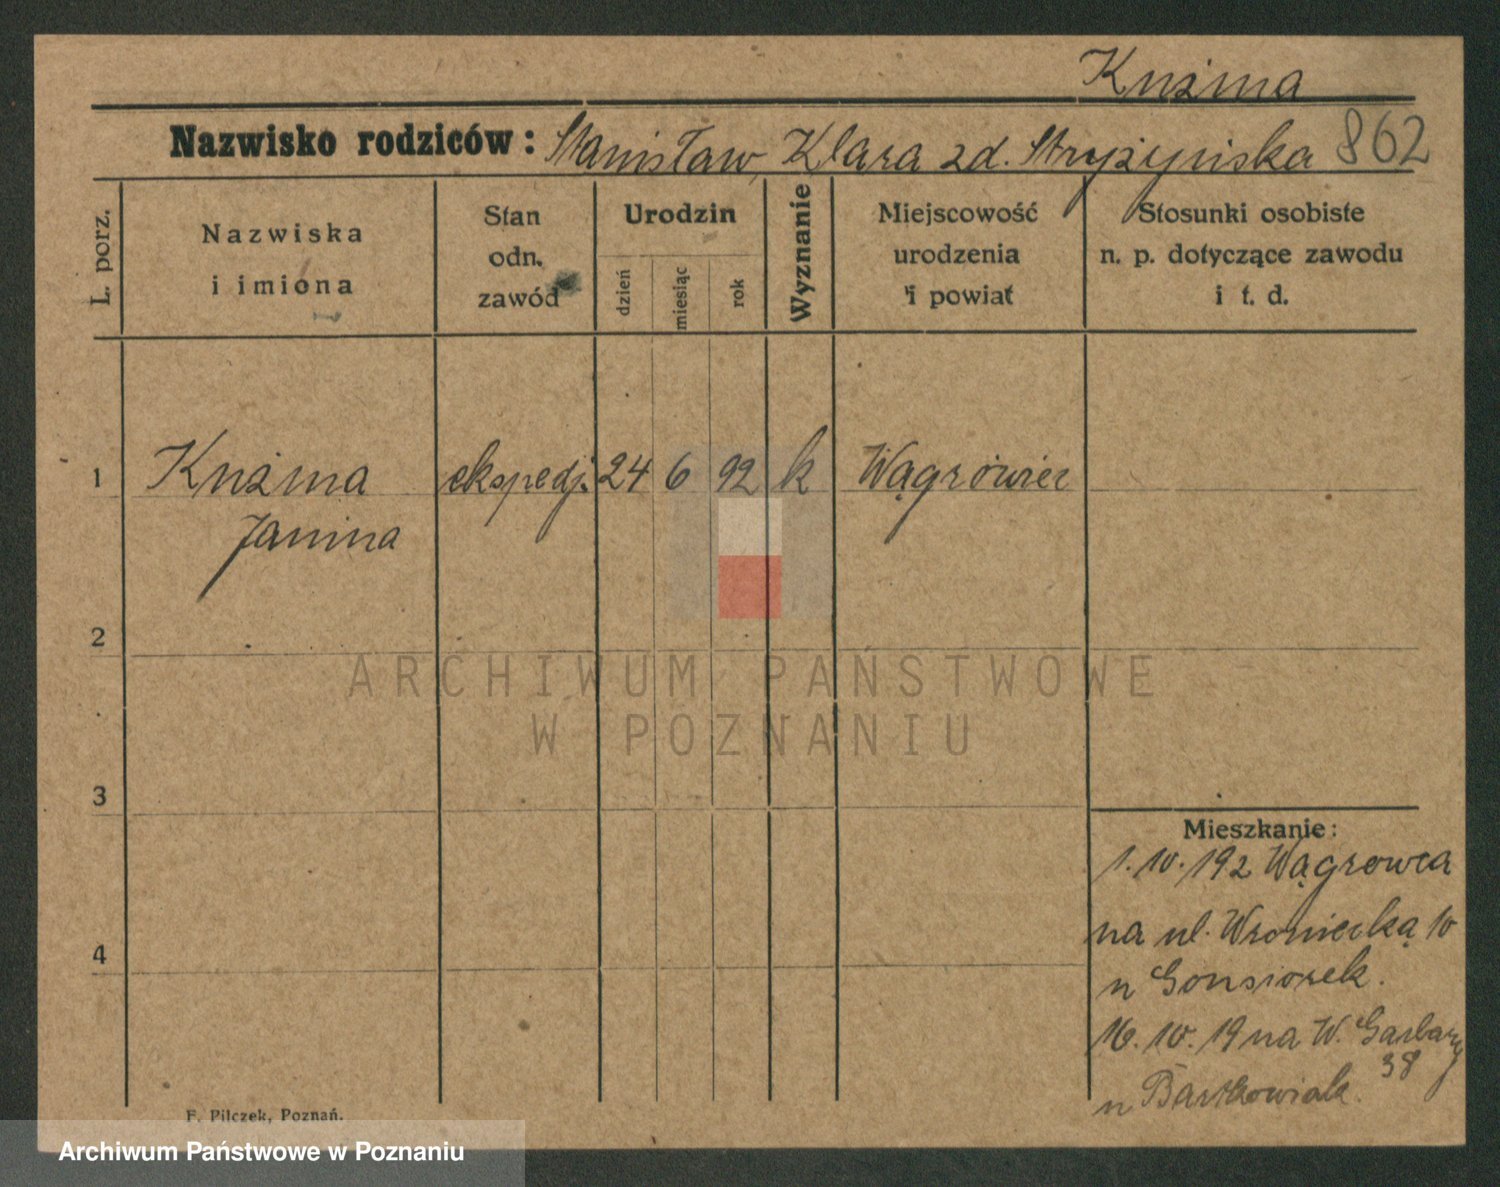 Kuźma
Nazwisko rodziców: Stanisław, Klara zd. Stryżyńska 862
L. porz.
Nazwiska
i imiona
Stan
odn.
zawód
Urodzin
dzień
miesiąc
rok
Wyznanie
Miejscowość
urodzenia
i powiat
Stosunki osobiste
n. p. dotyczące zawodu
i t. d.
1 Kuźma ekspedj. 24 6 92 k Wągrówiec
Janina
2
3
4
Mieszkanie:
1. 10. 192 Wągrowca
na ul. Wroniecką 10
u Gonsiorek.
16. 10. 19 na W. Garbary
38
u Bartkowiak.
F. Pilczek, Poznań.
ARCHIWUM PAŃSTWOWE
W POZNANIU
Archiwum Państwowe w Poznaniu